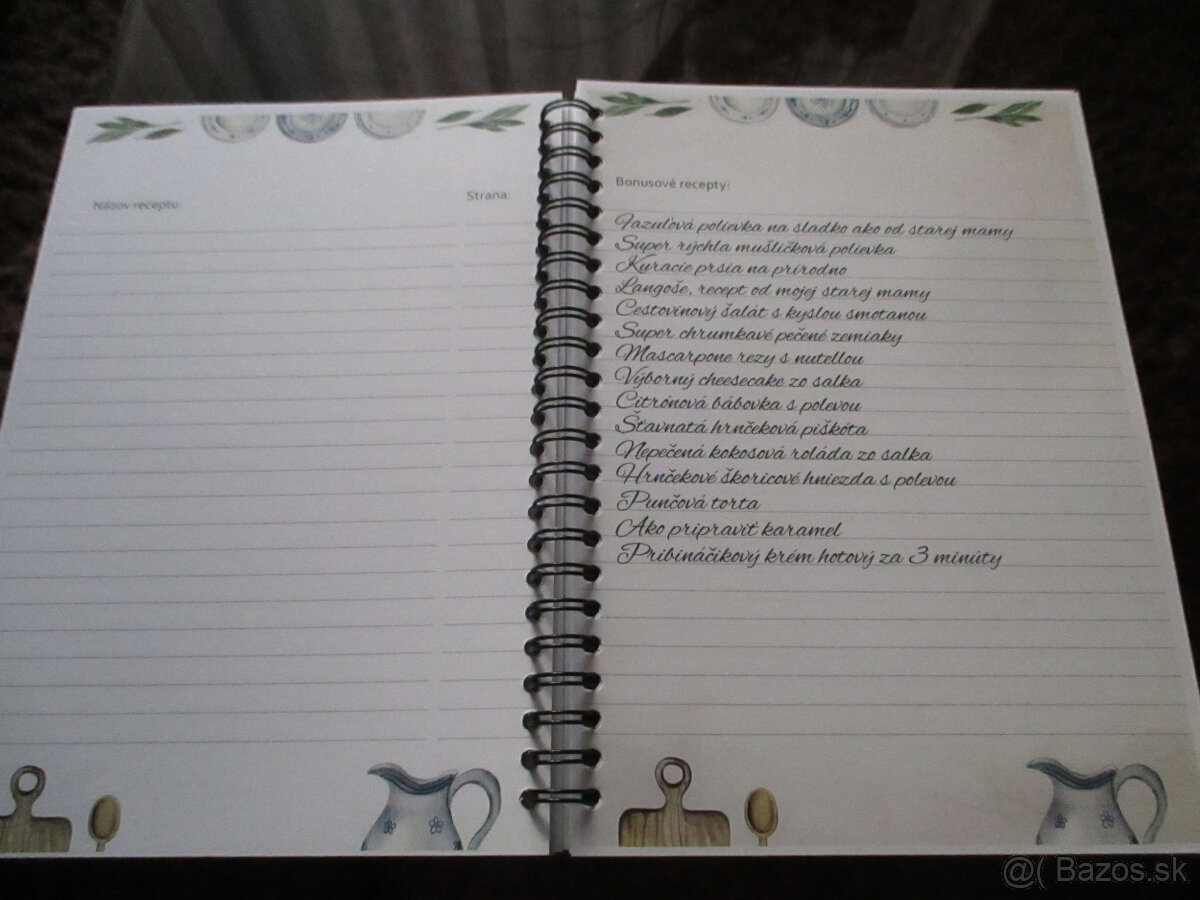 Názov receptu:
Strana:
Bonusové recepty:
Fazuľová polievka na sladko ako od starej mamy
Super rýchla mušličková polievka
Kuracie prsia na prírodno
Langoše, recept od mojej starej mamy
Cestovinový šalát s kyslou smotanou
Super chrumkavé pečené zemiaky
Mascarpone rezy s nutellou
Výborný cheesecake zo salka
Citrónová bábovka s polevou
Šťavnatá hrnčeková piškóta
Nepečená kokosová roláda zo salka
Hrnčekové škoricové hniezda s polevou
Punčová torta
Ako pripraviť karamel
Pribináčikový krém hotový za 3 minúty
@( Bazos.sk